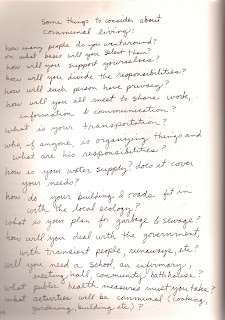 Some things to consider about
communal living:
how many people do you want around?
on what basis will you select them?
how will you support yourselves?
how will you divide the responsibilities?
how will each person have privacy?
how will you all meet to share work,
information & communication?
what is your transportation?
who, if anyone, is organizing things and
what are his responsibilities?
how is your water supply? does it cover
your needs?
how do your building & roads fit in
with the local ecology?
what is your plan for garbage & sewage?
how will you deal with the government,
with transient people, runaways, etc?
will you need a school, an infirmary,
meeting hall, community bathhouse?
what public health measures must you take?
what activities will be communal (cooking,
gardening, building etc)?